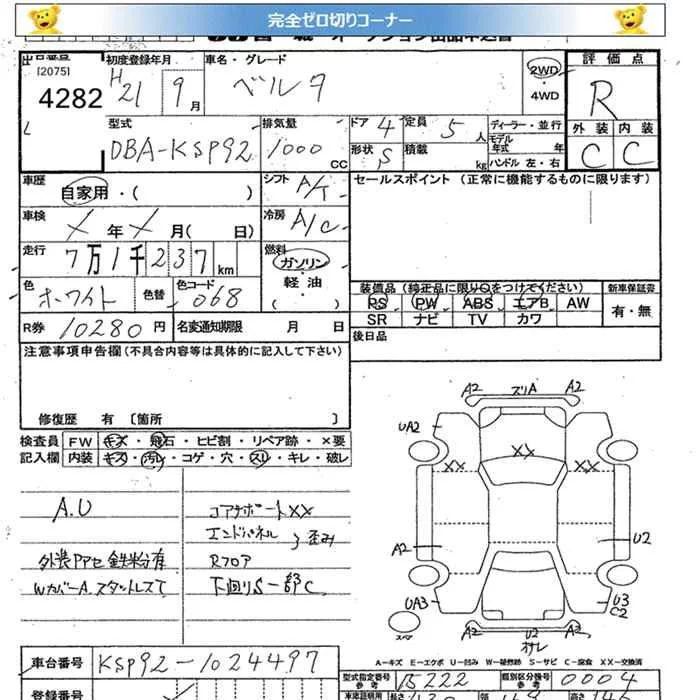 完全ゼロ切りコーナー
(2075)
4282
初度登録年月
H21 9月
車名・グレード
ベルタ
2WD
4WD
評価点
R
外装 内装
C C
型式
DBA-KSP92
排気量
1000 CC
ドア 4
定員 5 人
ディーラー・並行
モデル年式 年
形状 S
積載 kg
ハンドル 左・右
車歴
自家用・( )
シフト A/T
セールスポイント (正常に機能するものに限ります)
車検
X年X月( 日)
冷房 A/C
走行
7万1千237km
燃料
ガソリン
軽油
( )
色
ホワイト
色替
色コード
068
装備品(純正品に限り○をつけてください)
新車保証書
PS PW ABS エアB AW
有・無
SR ナビ TV カワ
R券 10280円
名変通知期限 月 日
後日品
注意事項申告欄(不具合内容等は具体的に記入して下さい)
修復歴 有 〔箇所 〕
検査員
記入欄
FW キズ・飛石・ヒビ割・リペア跡・×要
内装 キズ・汚レ・コゲ・穴・スレ・キレ・破レ
A.U
外装PPアセ 鉄粉有
WカバーA.スタットレスT
コアサポートXX
エンドパネル
Rフロア
歪み
下回りS一部C
A2 スリA A2
UA2
XX XX XX
A2
U2
UA3
U3
C2
A2 U2 A2
オサレ
A―キズ E―エクボ U―凹み W―補修跡 S―サビ C―腐食 XX―交換済
車台番号
KSP92-1024497
型式指定番号
参考
15222
類別区分番号
参考
0004
登録番号
車庫証明用
長さ
幅
高さ